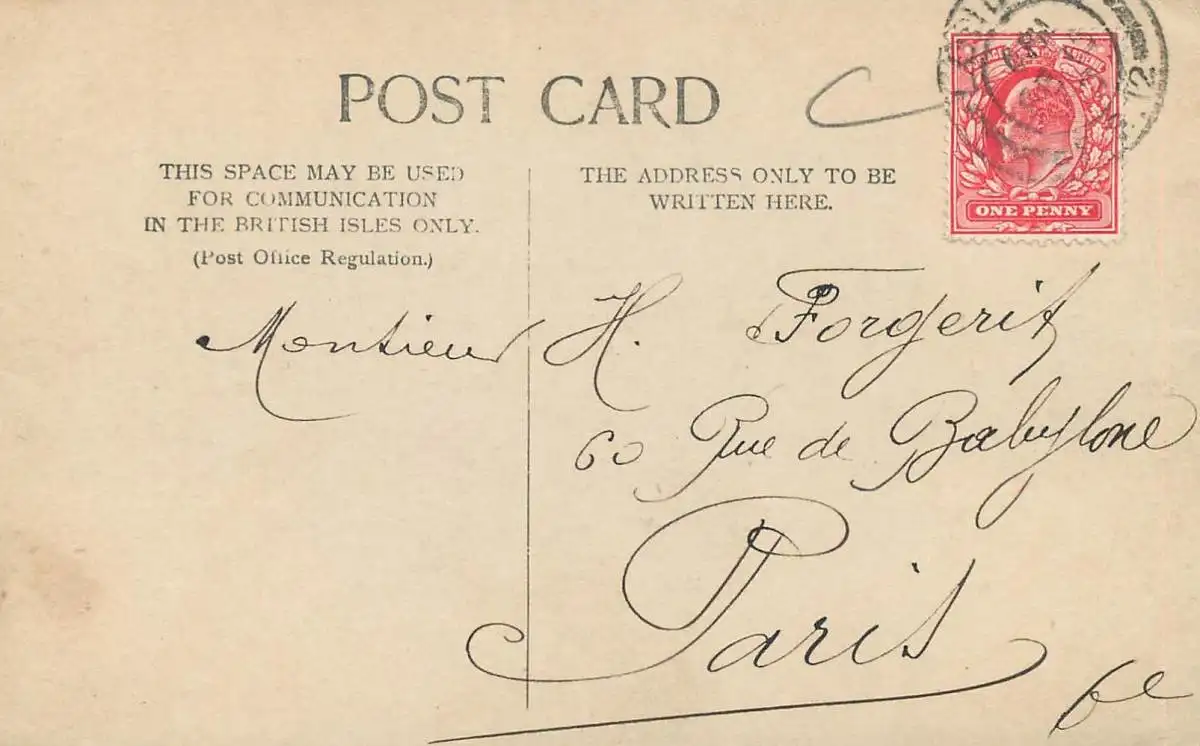 POST CARD
THIS SPACE MAY BE USED
FOR COMMUNICATION
IN THE BRITISH ISLES ONLY.
(Post Office Regulation.)
THE ADDRESS ONLY TO BE
WRITTEN HERE.
POSTAGE REVENUE
ONE PENNY
12
Monsieur H. Forgerit
60 Rue de Babylone
Paris